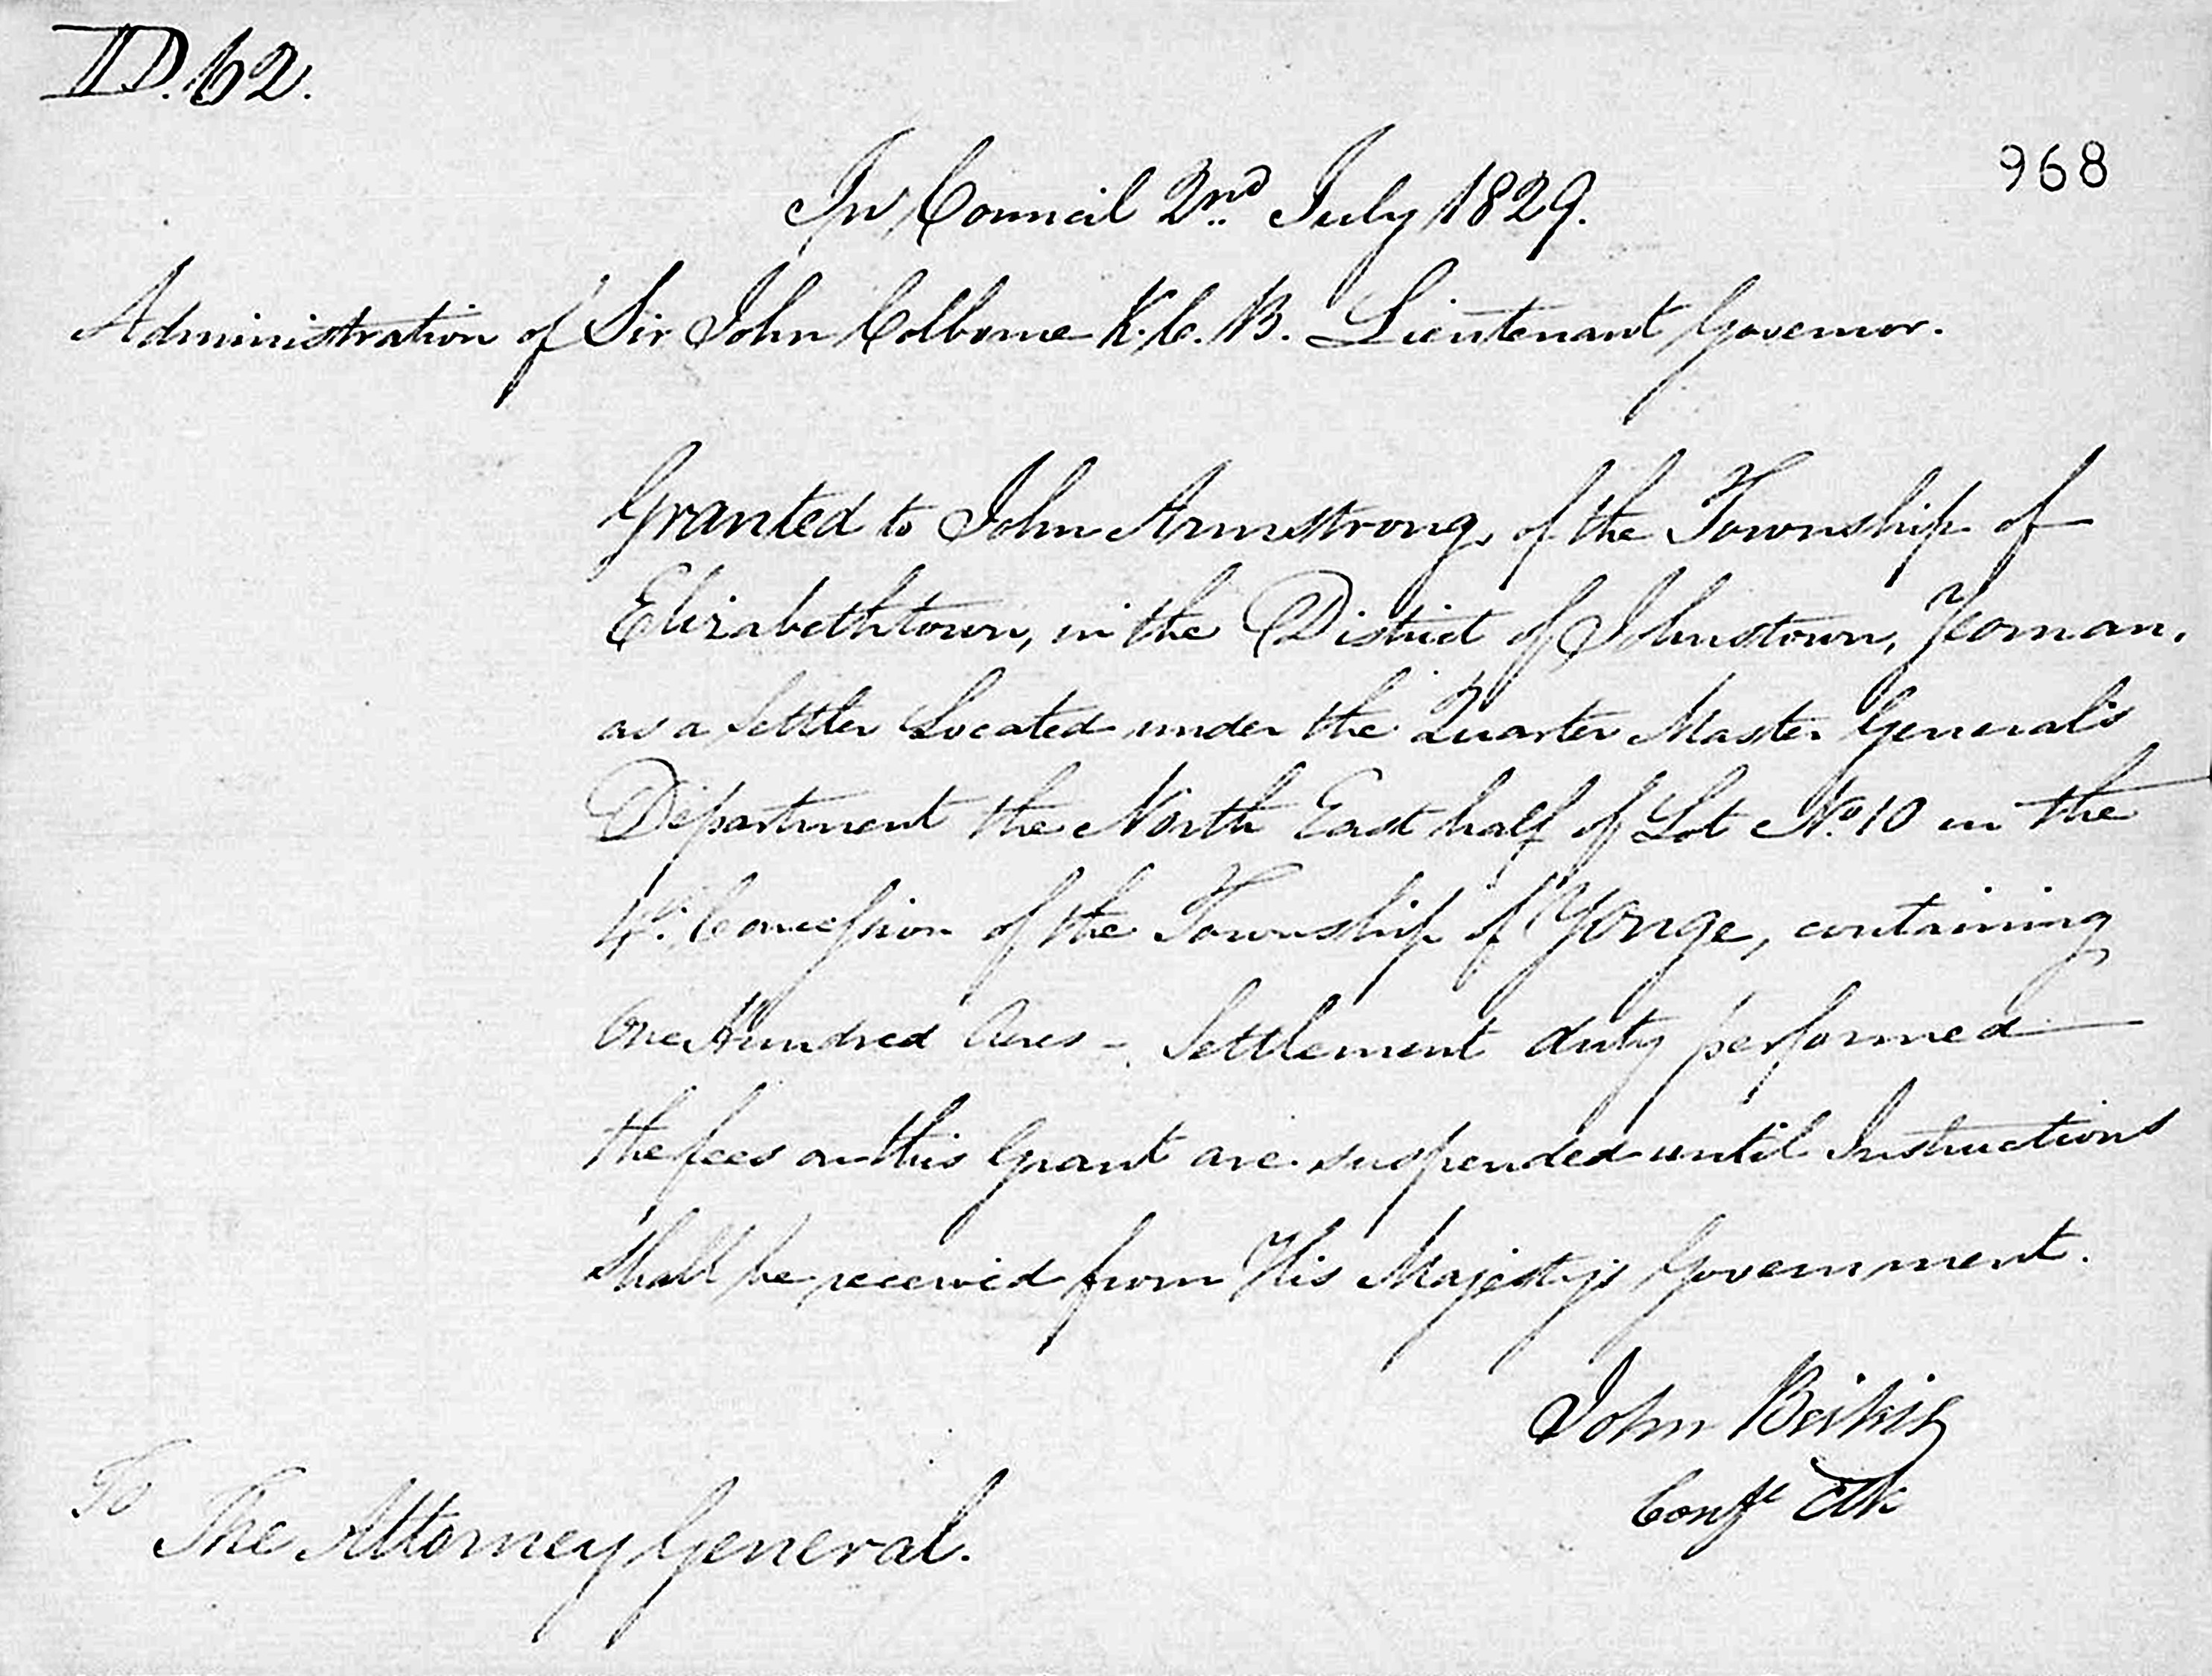 D.62.
968
In Council 2nd July 1829.
Administration of Sir John Colborne K.C.B. Lieutenant Governor.
Granted to John Armstrong, of the Township of
Elizabethtown, in the District of Johnstown, Yeoman.
as a Settler Located under the Quarter Master General's
Department the North East half of Lot No. 10 in the
Concession of the Township of Yonge, containing
One Hundred Acres - Settlement duty performed
the fees on this Grant are suspended until Instructions
shall be received from His Majesty's Government.
John Beikie
Clk
To
The Attorney General.